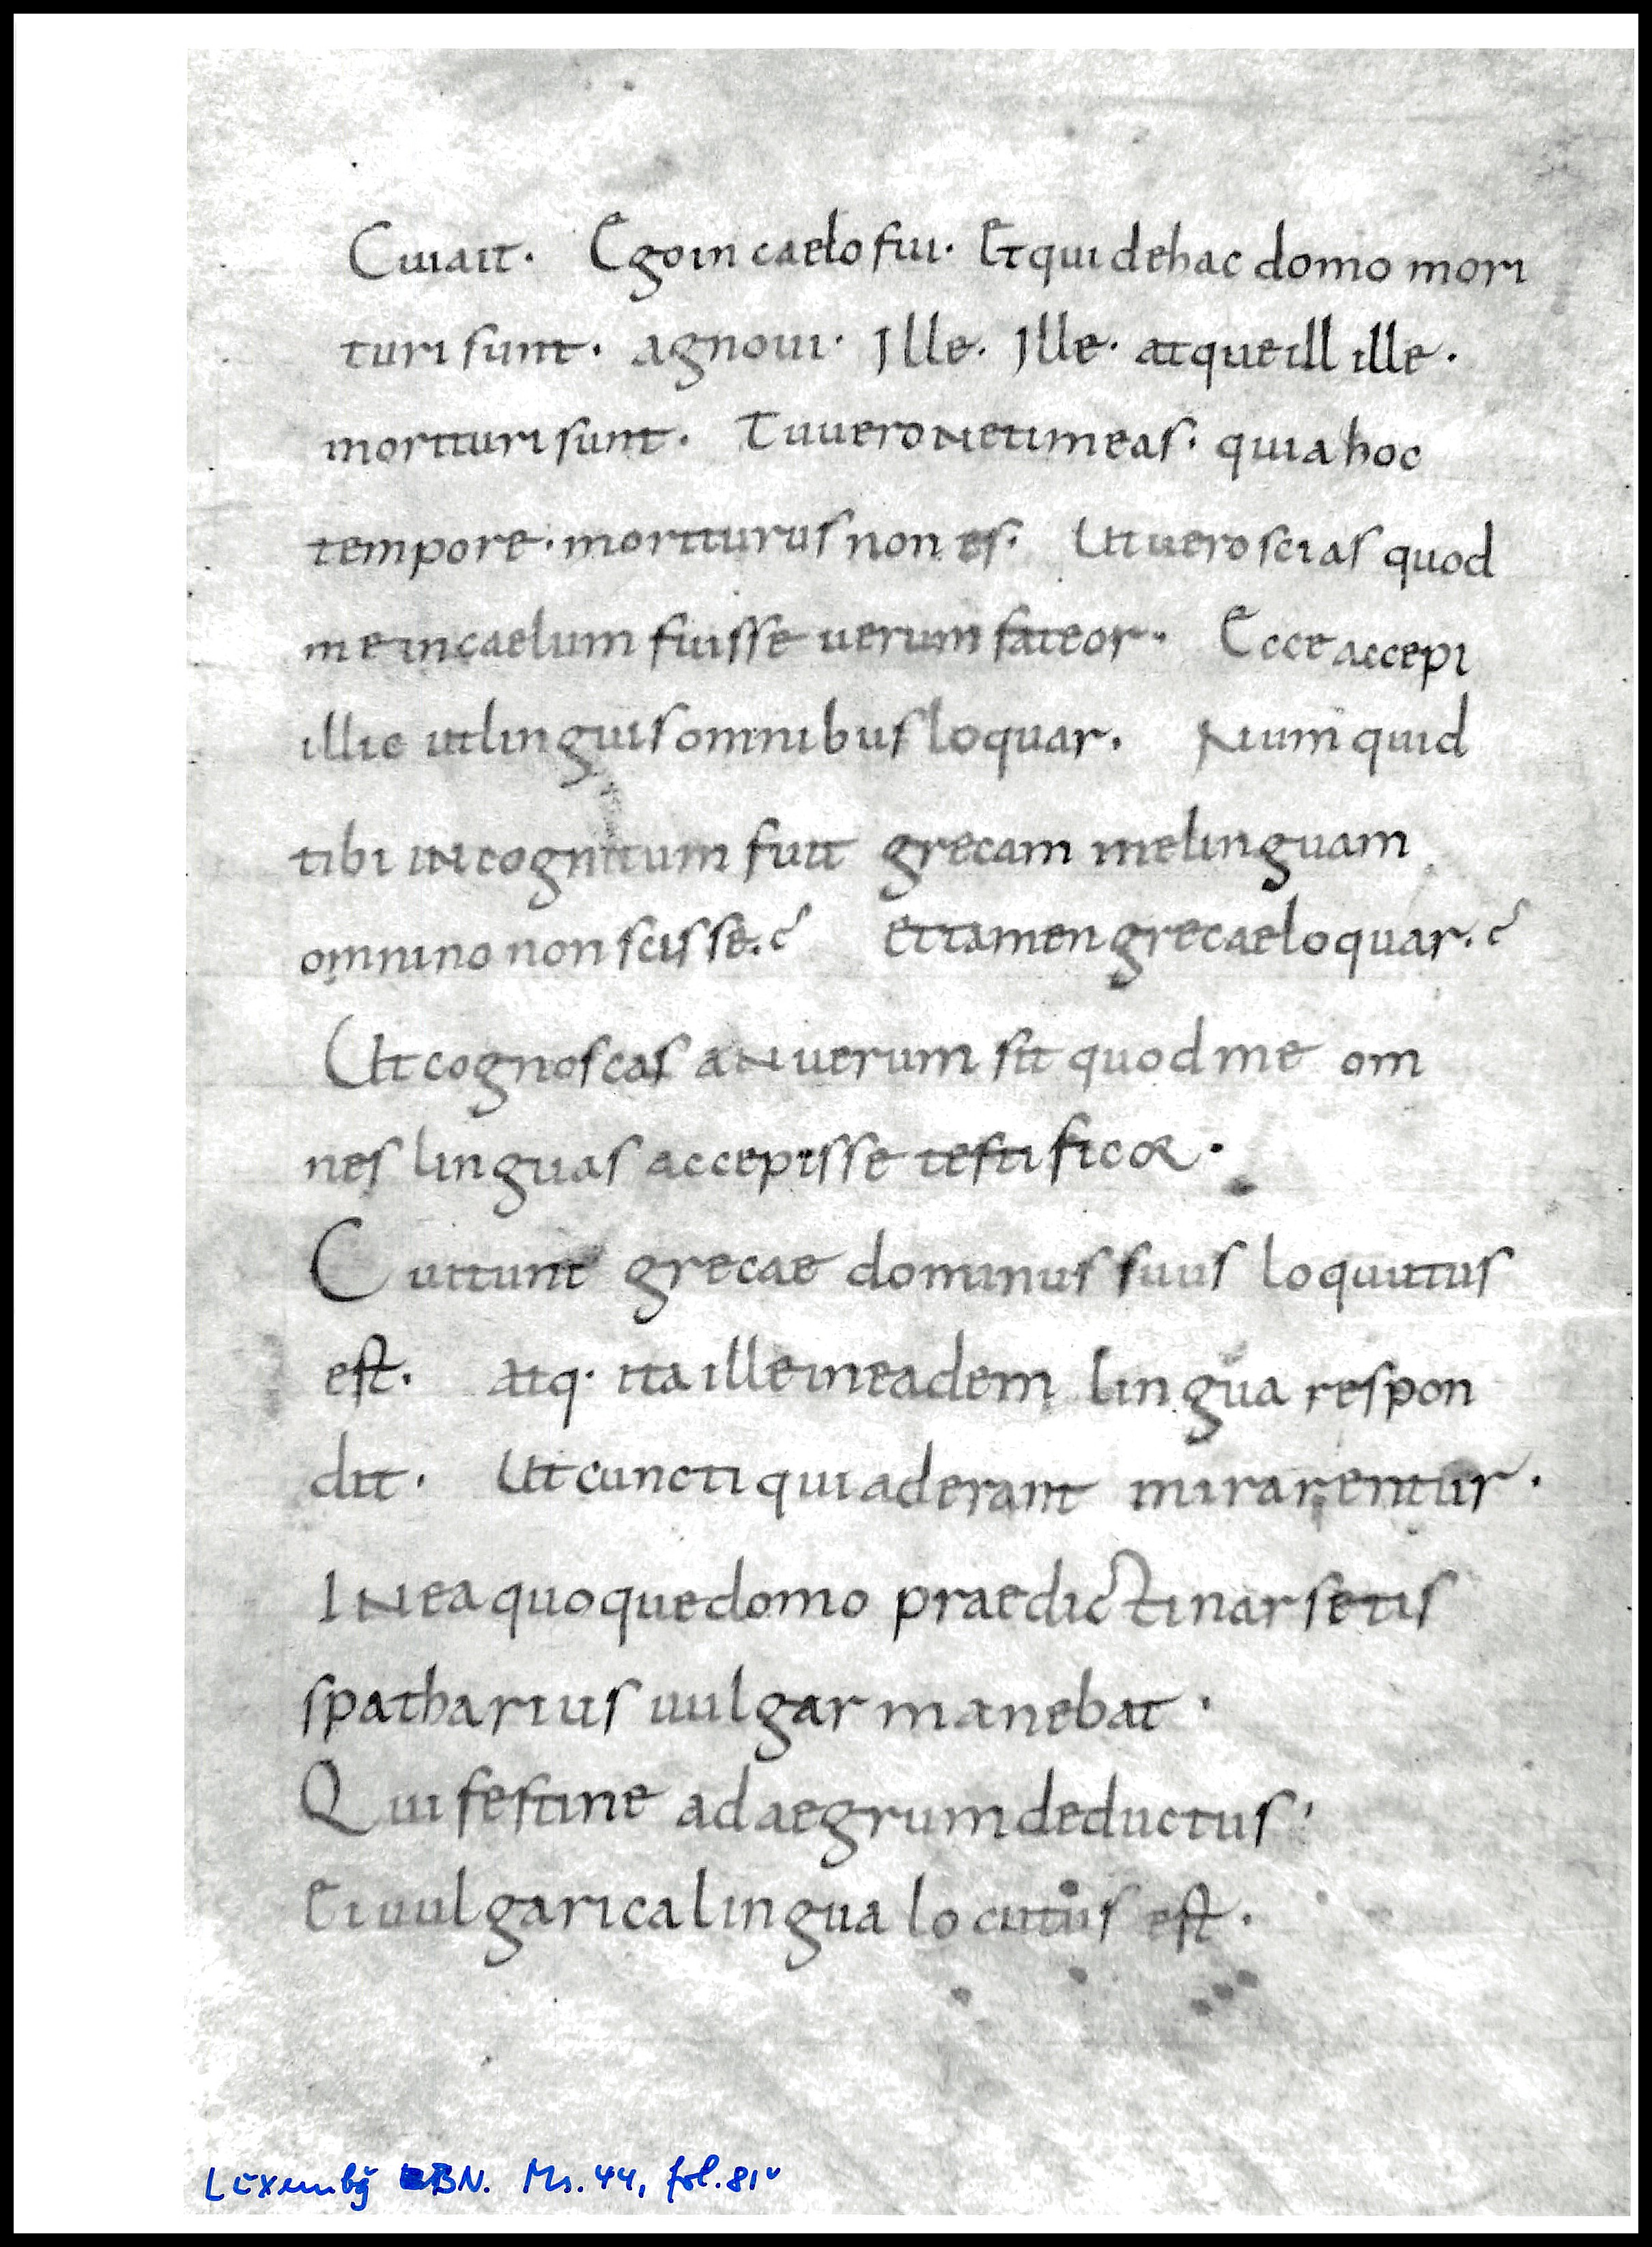 Cui ait. Ego in caelo fui. Et qui de hac domo mori
turi sunt. agnoui. Ille. Ille. atque ill ille.
morituri sunt. Tu uero ne timeas. quia hoc
tempore. moriturus non es. Ut uero scias quod
me in caelum fuisse uerum fateor. Ecce accepi
illic ut linguis omnibus loquar. Numquid
tibi incognitum fuit grecam me linguam
omnino non scisse.? et tamen grecae loquar.?
Ut cognoscas an uerum sit quod me om
nes linguas accepisse testificor.
Cui tunc grecae dominus suus loquutus
est. atq. ita ille in eadem lingua respon
dit. Ut cuncti qui aderant mirarentur.
In ea quoque domo praedicti narsetis
spatharius uulgar manebat.
Qui festine ad aegrum deductus.
Ei uulgarica lingua locutus est.
Luxembg BN. Ms. 44, fol. 81v